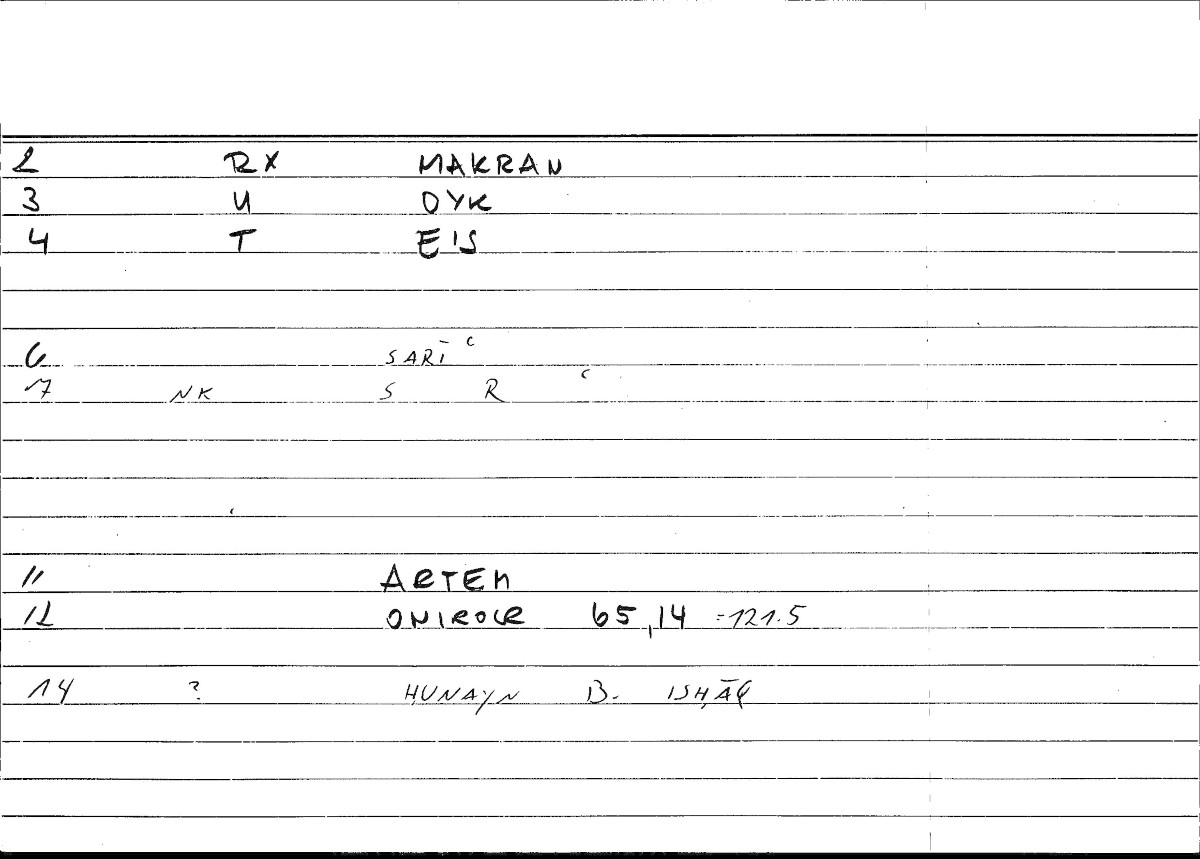 2 RX MAKRAN
3 U OYK
4 T EIS
6 SARĪʿ
17 NK S R ʿ
11 ARTEM
12 ONIROCR 65,14 =121.5
14 ? ḤUNAYN B. ISḤĀQ